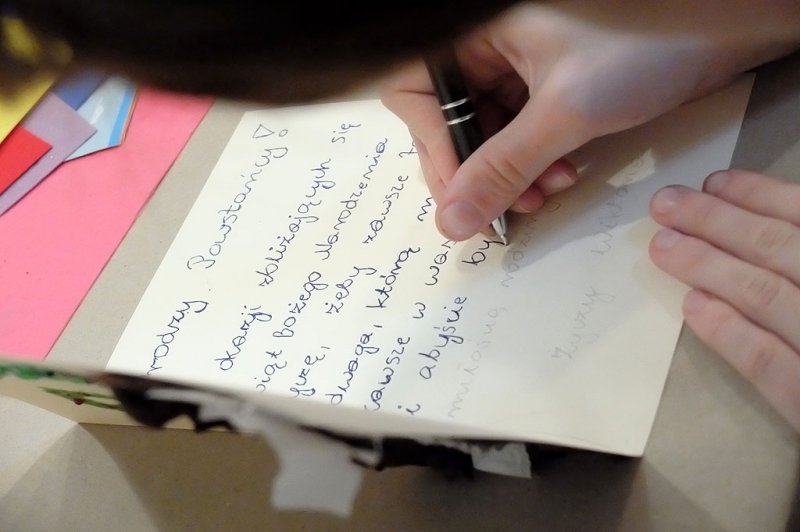 rodzy Powstańcy!
okazji zbliżających się
wiąt Bożego Narodzenia
yczę, żeby zawsze
dwaga, którą m
zawsze w
i abyście by
miłością, rodzin
życzy